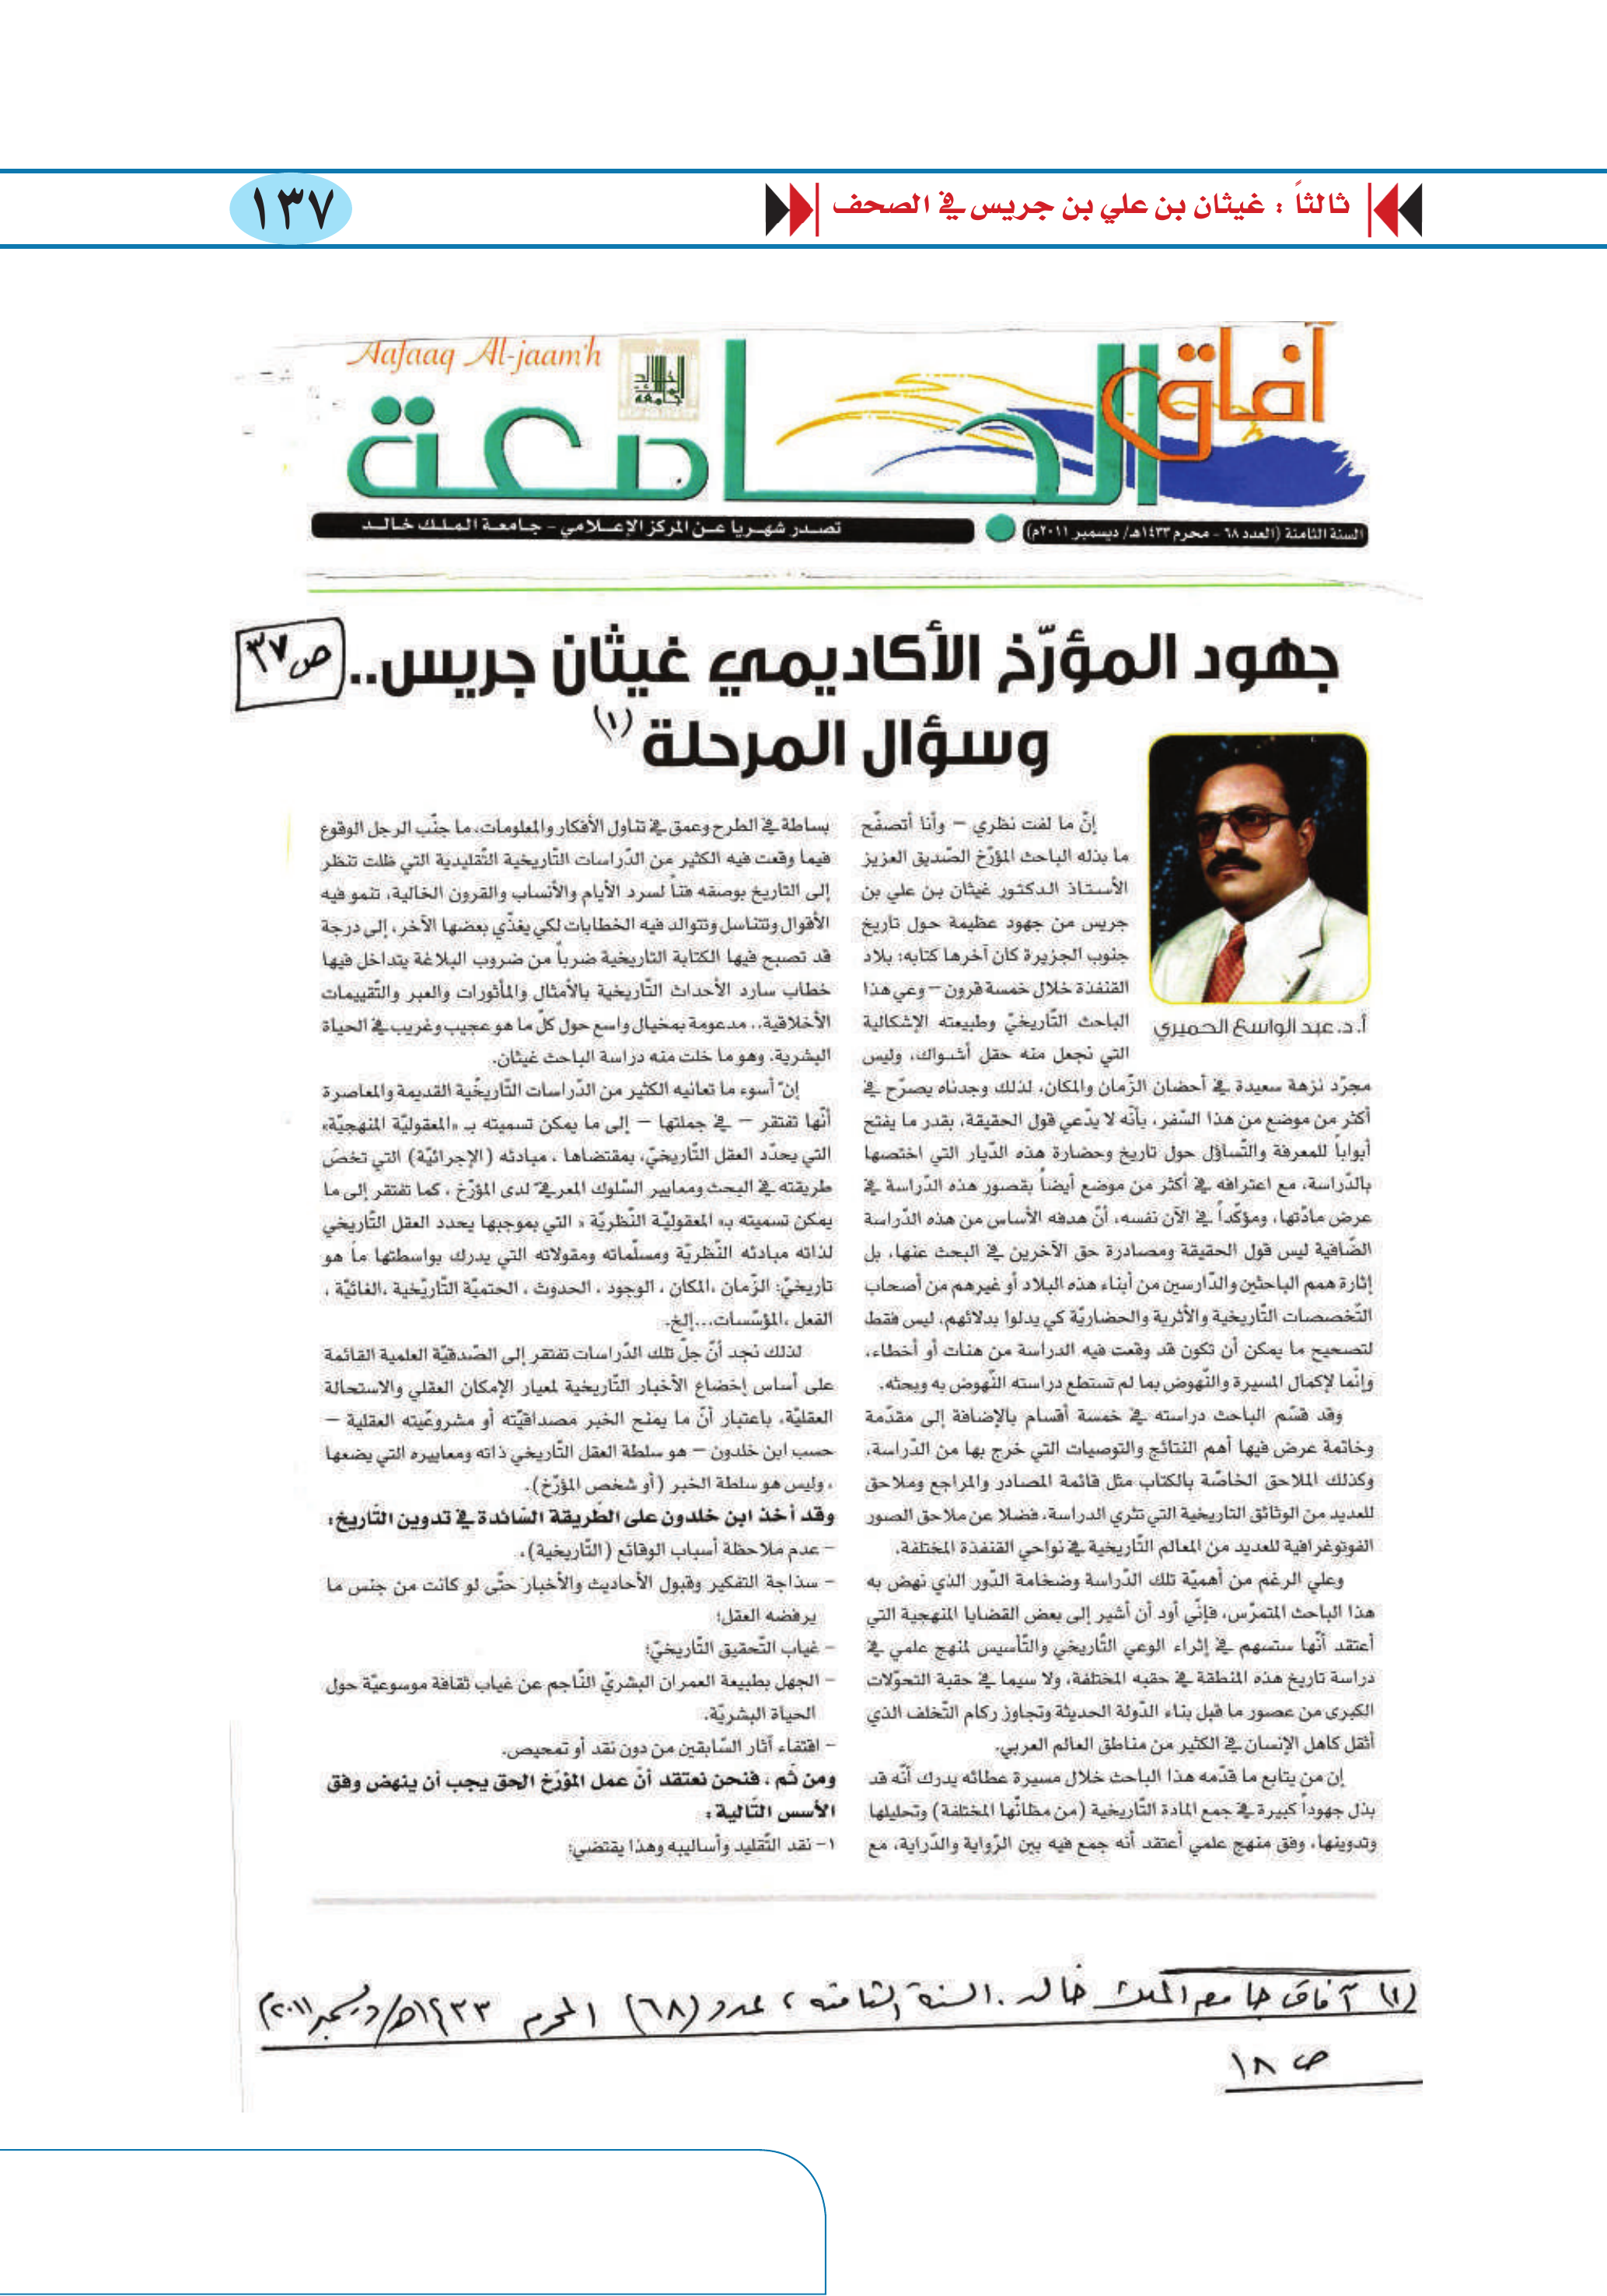 ثالثاً : غيثان بن علي بن جريس في الصحف
١٣٧
آفاق الجامعة
Aafaaq Al-jaam'h
جامعة الملك خالد
السنة الثامنة (العدد ٦٨ - محرم ١٤٣٣هـ/ ديسمبر ٢٠١١م)
تصدر شهريا عن المركز الإعلامي - جامعة الملك خالد
جهود المؤرّخ الأكاديمي غيثان جريس..
ص ٣٧
وسؤال المرحلة (١)
أ. د. عبد الواسع الحميري
إنّ ما لفت نظري – وأنا أتصفّح
ما بذله الباحث المؤرّخ الصّديق العزيز
الأستاذ الدكتور غيثان بن علي بن
جريس من جهود عظيمة حول تاريخ
جنوب الجزيرة كان آخرها كتابه: بلاد
القنفذة خلال خمسة قرون – وعي هذا
الباحث التّاريخيّ وطبيعته الإشكالية
التي تجعل منه حقل أشواك، وليس
مجرّد نزهة سعيدة في أحضان الزّمان والمكان، لذلك وجدناه يصرّح في
أكثر من موضع من هذا السّفر، بأنّه لا يدّعي قول الحقيقة، بقدر ما يفتح
أبواباً للمعرفة والتّساؤل حول تاريخ وحضارة هذه الدّيار التي اختصها
بالدّراسة، مع اعترافه في أكثر من موضع أيضاً بقصور هذه الدّراسة في
عرض مادّتها، ومؤكّداً في الآن نفسه، أنّ هدفه الأساس من هذه الدّراسة
الضّافية ليس قول الحقيقة ومصادرة حق الآخرين في البحث عنها، بل
إثارة همم الباحثين والدّارسين من أبناء هذه البلاد أو غيرهم من أصحاب
التّخصصات التّاريخية والأثرية والحضاريّة كي يدلوا بدلائهم، ليس فقط
لتصحيح ما يمكن أن تكون قد وقعت فيه الدراسة من هنات أو أخطاء،
وإنّما لإكمال المسيرة والنّهوض بما لم تستطع دراسته النّهوض به وبحثه.
وقد قسّم الباحث دراسته في خمسة أقسام بالإضافة إلى مقدّمة
وخاتمة عرض فيها أهم النتائج والتوصيات التي خرج بها من الدّراسة،
وكذلك الملاحق الخاصّة بالكتاب مثل قائمة المصادر والمراجع وملاحق
للعديد من الوثائق التاريخية التي تثري الدراسة، فضلا عن ملاحق الصور
الفوتوغرافية للعديد من المعالم التّاريخية في نواحي القنفذة المختلفة.
وعلي الرغم من أهميّة تلك الدّراسة وضخامة الدّور الذي نهض به
هذا الباحث المتمرّس، فإنّي أود أن أشير إلى بعض القضايا المنهجية التي
أعتقد أنّها ستسهم في إثراء الوعي التّاريخي والتّأسيس لمنهج علمي في
دراسة تاريخ هذه المنطقة في حقبه المختلفة، ولا سيما في حقبة التحوّلات
الكبرى من عصور ما قبل بناء الدّولة الحديثة وتجاوز ركام التّخلف الذي
أثقل كاهل الإنسان في الكثير من مناطق العالم العربي.
إن من يتابع ما قدّمه هذا الباحث خلال مسيرة عطائه يدرك أنّه قد
بذل جهوداً كبيرة في جمع المادة التّاريخية (من مظانّها المختلفة) وتحليلها
وتدوينها، وفق منهج علمي أعتقد أنه جمع فيه بين الرّواية والدّراية، مع
بساطة في الطرح وعمق في تناول الأفكار والمعلومات، ما جنّب الرجل الوقوع
فيما وقعت فيه الكثير من الدّراسات التّاريخية التّقليدية التي ظلت تنظر
إلى التاريخ بوصفه فنّاً لسرد الأيام والأنساب والقرون الخالية، تنمو فيه
الأقوال وتتناسل وتتوالد فيه الخطابات لكي يغذّي بعضها الآخر، إلى درجة
قد تصبح فيها الكتابة التاريخية ضرباً من ضروب البلاغة يتداخل فيها
خطاب سارد الأحداث التّاريخية بالأمثال والمأثورات والعبر والتّقييمات
الأخلاقية.. مدعومة بمخيال واسع حول كلّ ما هو عجيب وغريب في الحياة
البشرية. وهو ما خلت منه دراسة الباحث غيثان.
إن أسوء ما تعانيه الكثير من الدّراسات التّاريخّية القديمة والمعاصرة
أنّها تفتقر – في جملتها – إلى ما يمكن تسميته بـ «المعقوليّة المنهجيّة»
التي يحدّد العقل التّاريخيّ، بمقتضاها ، مبادئه (الإجرائيّة) التي تخصّ
طريقته في البحث ومعايير السّلوك المعرفيّ لدى المؤرّخ ، كما تفتقر إلى ما
يمكن تسميته بـ« المعقوليّة النّظريّة » التي بموجبها يحدد العقل التّاريخي
لذاته مبادئه النّظريّة ومسلّماته ومقولاته التي يدرك بواسطتها ما هو
تاريخيّ: الزّمان ،المكان ، الوجود ، الحدوث ، الحتميّة التّاريّخية ،الغائيّة ،
الفعل ،المؤسّسات...إلخ.
لذلك نجد أنّ جلّ تلك الدّراسات تفتقر إلى الصّدقيّة العلمية القائمة
على أساس إخضاع الأخبار التّاريخية لمعيار الإمكان العقلي والاستحالة
العقليّة، باعتبار أنّ ما يمنح الخبر مصداقيّته أو مشروعيّته العقلية –
حسب ابن خلدون – هو سلطة العقل التّاريخي ذاته ومعاييره التي يضعها
، وليس هو سلطة الخبر (أو شخص المؤرّخ).
وقد أخذ ابن خلدون على الطّريقة السّائدة في تدوين التّاريخ:
- عدم ملاحظة أسباب الوقائع (التّاريخية)،
- سذاجة التفكير وقبول الأحاديث والأخبار حتّى لو كانت من جنس ما
يرفضه العقل؛
- غياب التّحقيق التّاريخيّ؛
- الجهل بطبيعة العمران البشريّ النّاجم عن غياب ثقافة موسوعيّة حول
الحياة البشريّة.
- اقتفاء آثار السّابقين من دون نقد أو تمحيص.
ومن ثَم ، فنحن نعتقد أنّ عمل المؤرّخ الحق يجب أن ينهض وفق
الأسس التّالية :
١- نقد التّقليد وأساليبه وهذا يقتضي:
(١) آفاق جامعة الملك خالد . السنة الثامنة ، عدد (٦٨) المحرم ١٤٣٣هـ/ ديسمبر ٢٠١١)
ص ١٨